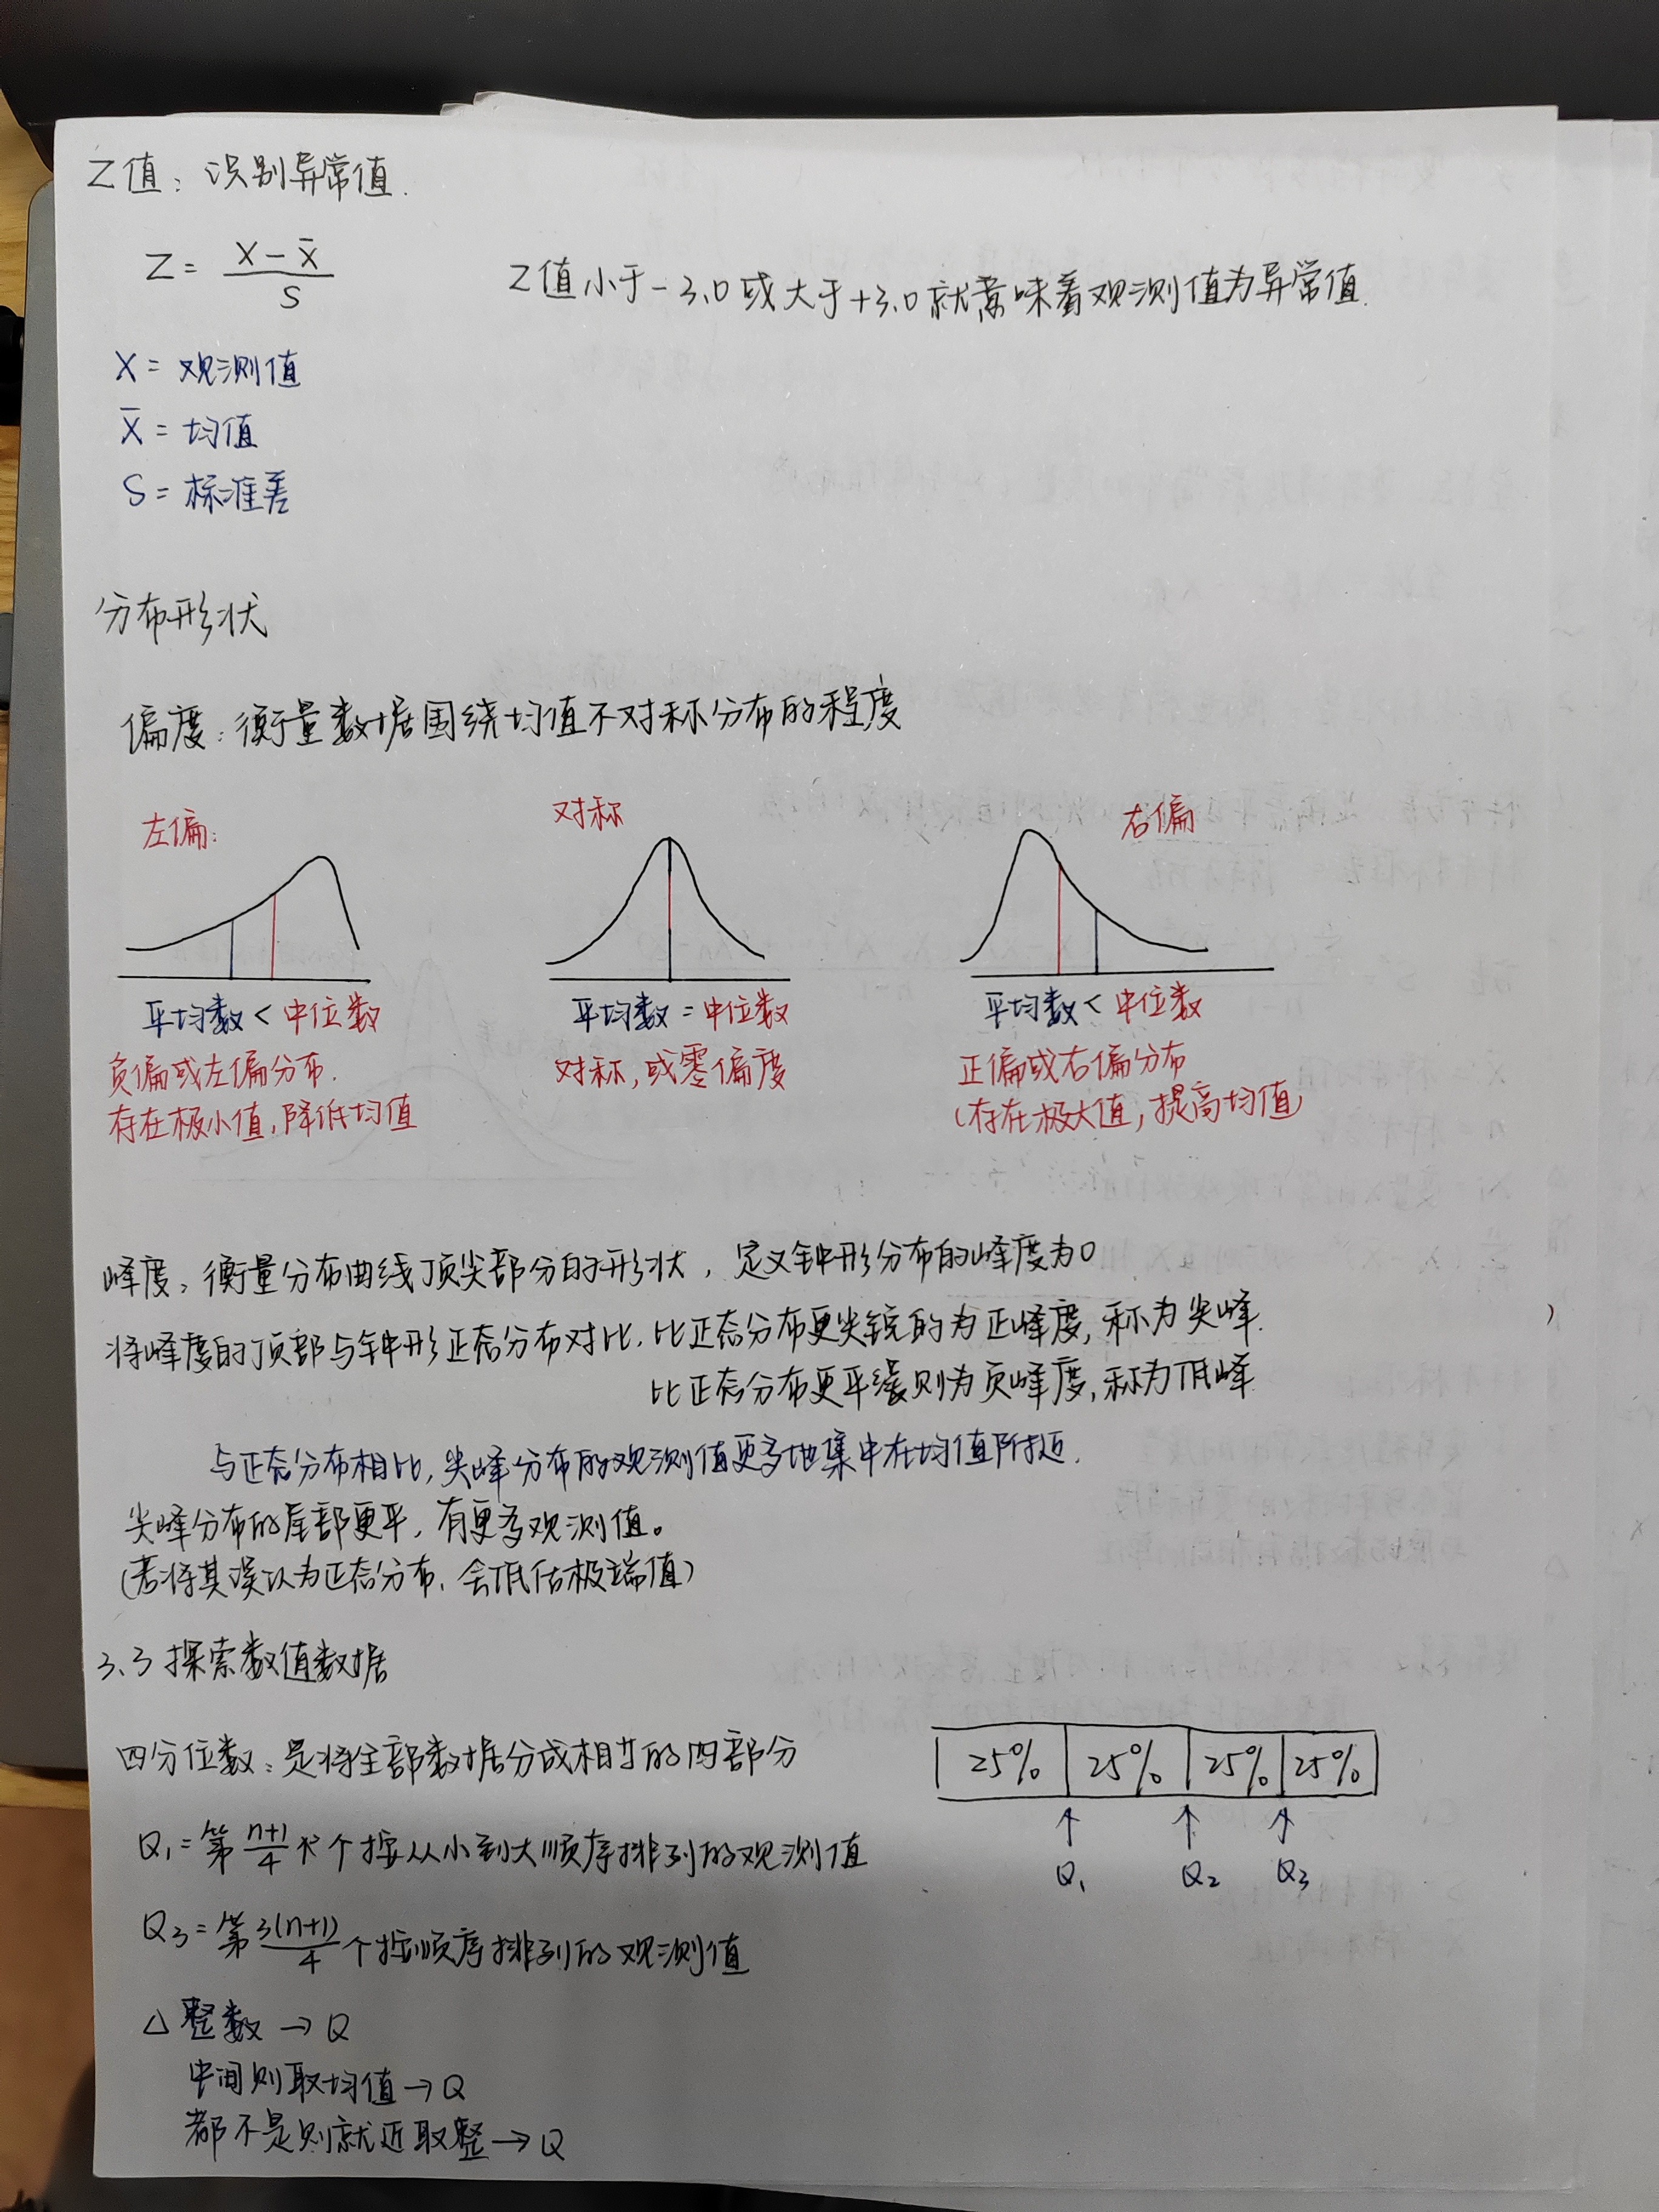 Z值：识别异常值.
Z = (X - X̄) / S
Z值小于-3.0或大于+3.0就意味着观测值为异常值.
X = 观测值
X̄ = 均值
S = 标准差
分布形状
偏度：衡量数据围绕均值不对称分布的程度
左偏: 对称 右偏
平均数 < 中位数 平均数 = 中位数 平均数 < 中位数
负偏或左偏分布. 对称,或零偏度 正偏或右偏分布
存在极小值,降低均值 (存在极大值,提高均值)
峰度：衡量分布曲线顶尖部分的形状，定义钟形分布的峰度为0
将峰度的顶部与钟形正态分布对比,比正态分布更尖锐的为正峰度,称为尖峰.
比正态分布更平缓则为负峰度,称为低峰
与正态分布相比,尖峰分布的观测值更多地集中在均值附近.
尖峰分布的尾部更平,有更多观测值。
(若将其误以为正态分布,会低估极端值)
3.3 探索数值数据
四分位数：是将全部数据分成相等的四部分
25% 25% 25% 25%
Q₁ Q₂ Q₃
Q₁ = 第 (n+1)/4 个按从小到大顺序排列的观测值
Q₃ = 第 3(n+1)/4 个按顺序排列的观测值
△ 整数 → Q
中间则取均值 → Q
都不是则就近取整 → Q